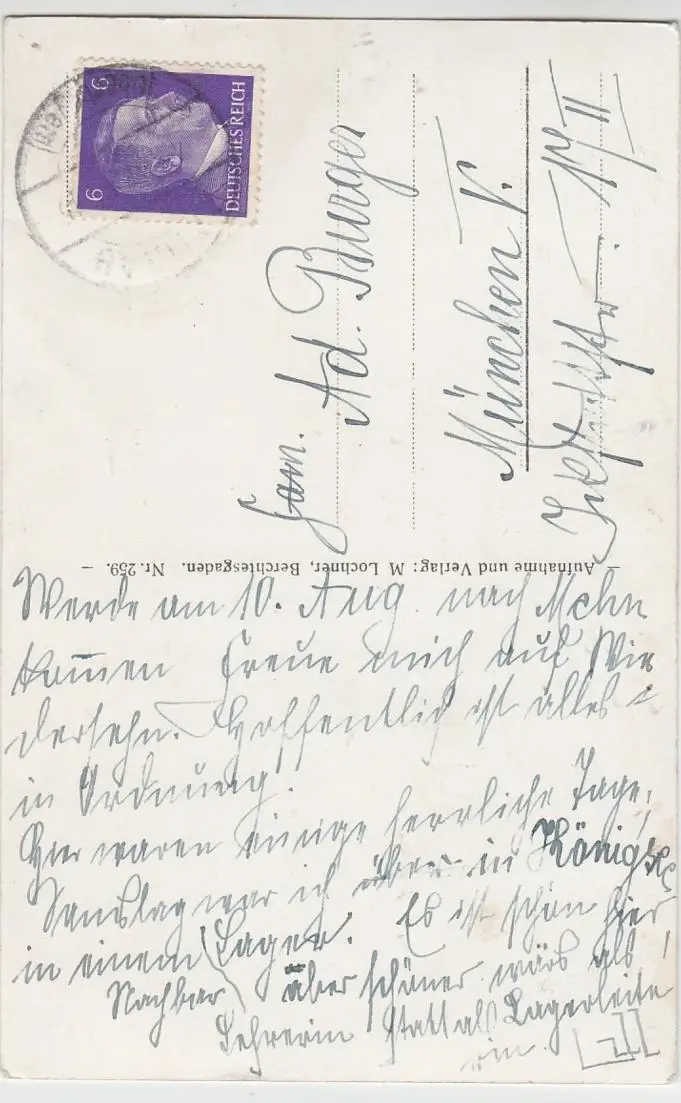 DEUTSCHES REICH
6 6
Fam.
Ad. Burger
München V.
17/II
— Aufnahme und Verlag: M Lochner, Berchtesgaden. Nr. 259. —
Werde am 10. Aug. nach Mchn
kommen Freue mich auf Wie
dersehn. Hoffentlich ist alles
in Ordnung!
Hier waren einige herrliche Tage,
Samstag war ich über in
in einem Lager. Es ist schön hier
Nachbar
aber schöner wärs als
Lehrerin statt als Lagerleite
rin.